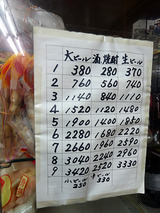 大ビール 酒 焼酎 生ビール
1 380 280 370
2 760 560 740
3 1140 840 1110
4 1520 1120 1480
5 1900 1400 1850
6 2280 1680 2220
7 2660 1960 2590
8 3040 2240 2960
9 3420 2520 3330
小ビール
330 330